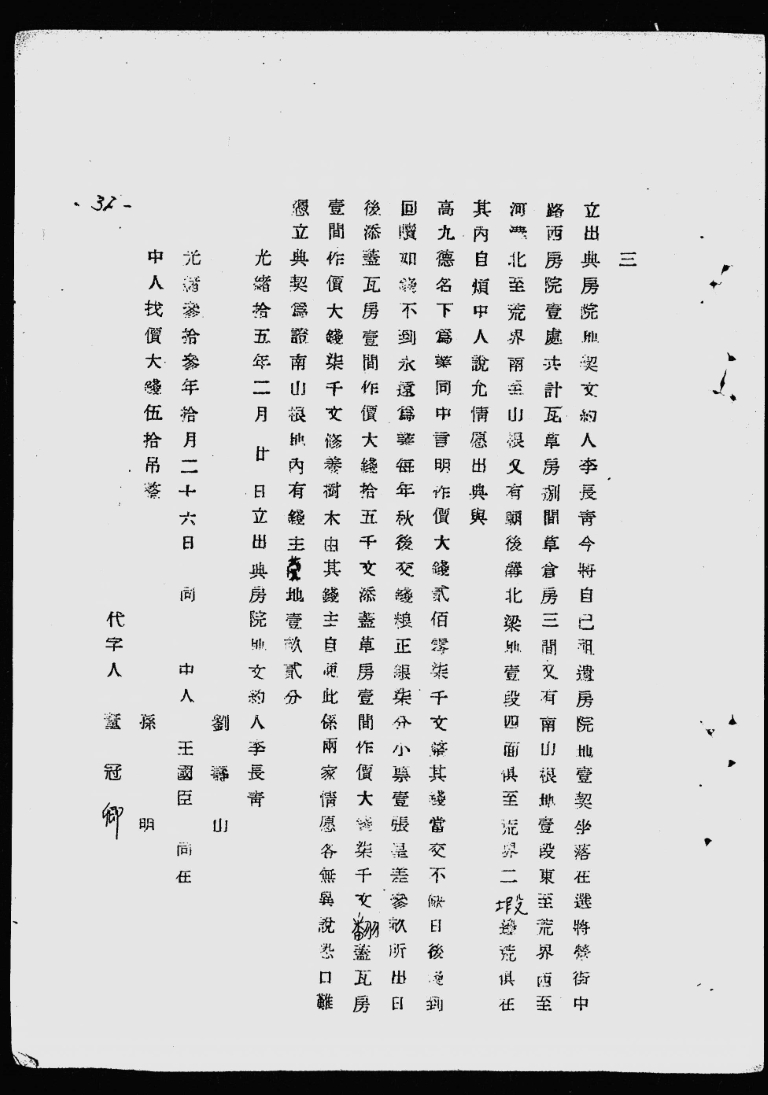 三
立出典房院地契文約人李長青今將自己祖遺房院地壹契坐落在選將營街中
路西房院壹處共計瓦草房捌間草倉房三間又有南山根地壹段東至荒界西至
河灣北至荒界南至山根又有廟後溝北梁地壹段四面俱至荒界二塅邊荒俱在
其內自煩中人說允情愿出典與
高九德名下爲業同中言明作價大錢貳佰零柒千文整其錢當交不缺日後錢到
回贖如錢不到永遠爲業每年秋後交錢粮正銀柒分小票壹張是差參畝所出日
後添蓋瓦房壹間作價大錢拾五千文添蓋草房壹間作價大錢柒千文翻蓋瓦房
壹間作價大錢柒千文修養樹木由其錢主自便此係兩家情愿各無異說恐口難
憑立典契爲證南山根地內有錢主地壹畝貳分
光緒拾五年二月廿日立出典房院地文約人李長青
劉壽山
光緒參拾參年拾月二十六日 同 中人 王國臣 同在
孫明
中人找價大錢伍拾吊整
代字人 董冠卿
- 32 -